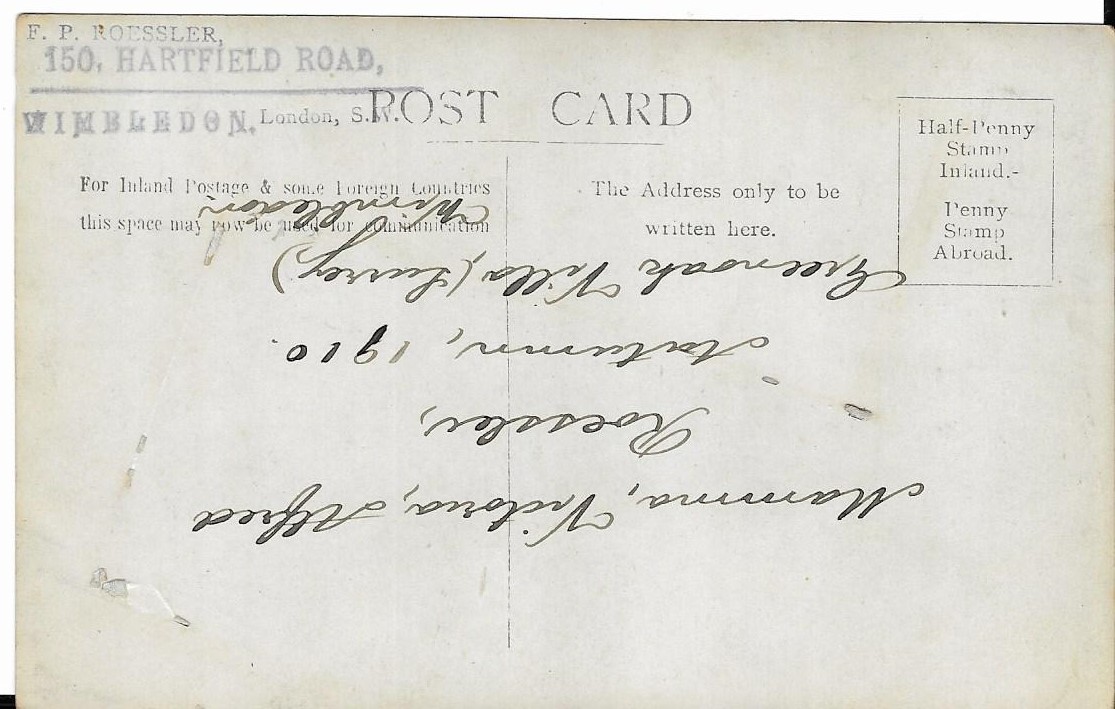 F. P. ROESSLER,
150, HARTFIELD ROAD,
WIMBLEDON. London, S.W.
POST CARD
For Inland Postage & some Foreign Countries
this space may now be used for communication
The Address only to be
written here.
Half-Penny
Stamp
Inland.-
Penny
Stamp
Abroad.
Mamma, Victoria, Alfred
Roessler,
Autumn, 1910.
Greenoak Villa (Surrey)
Wimbledon